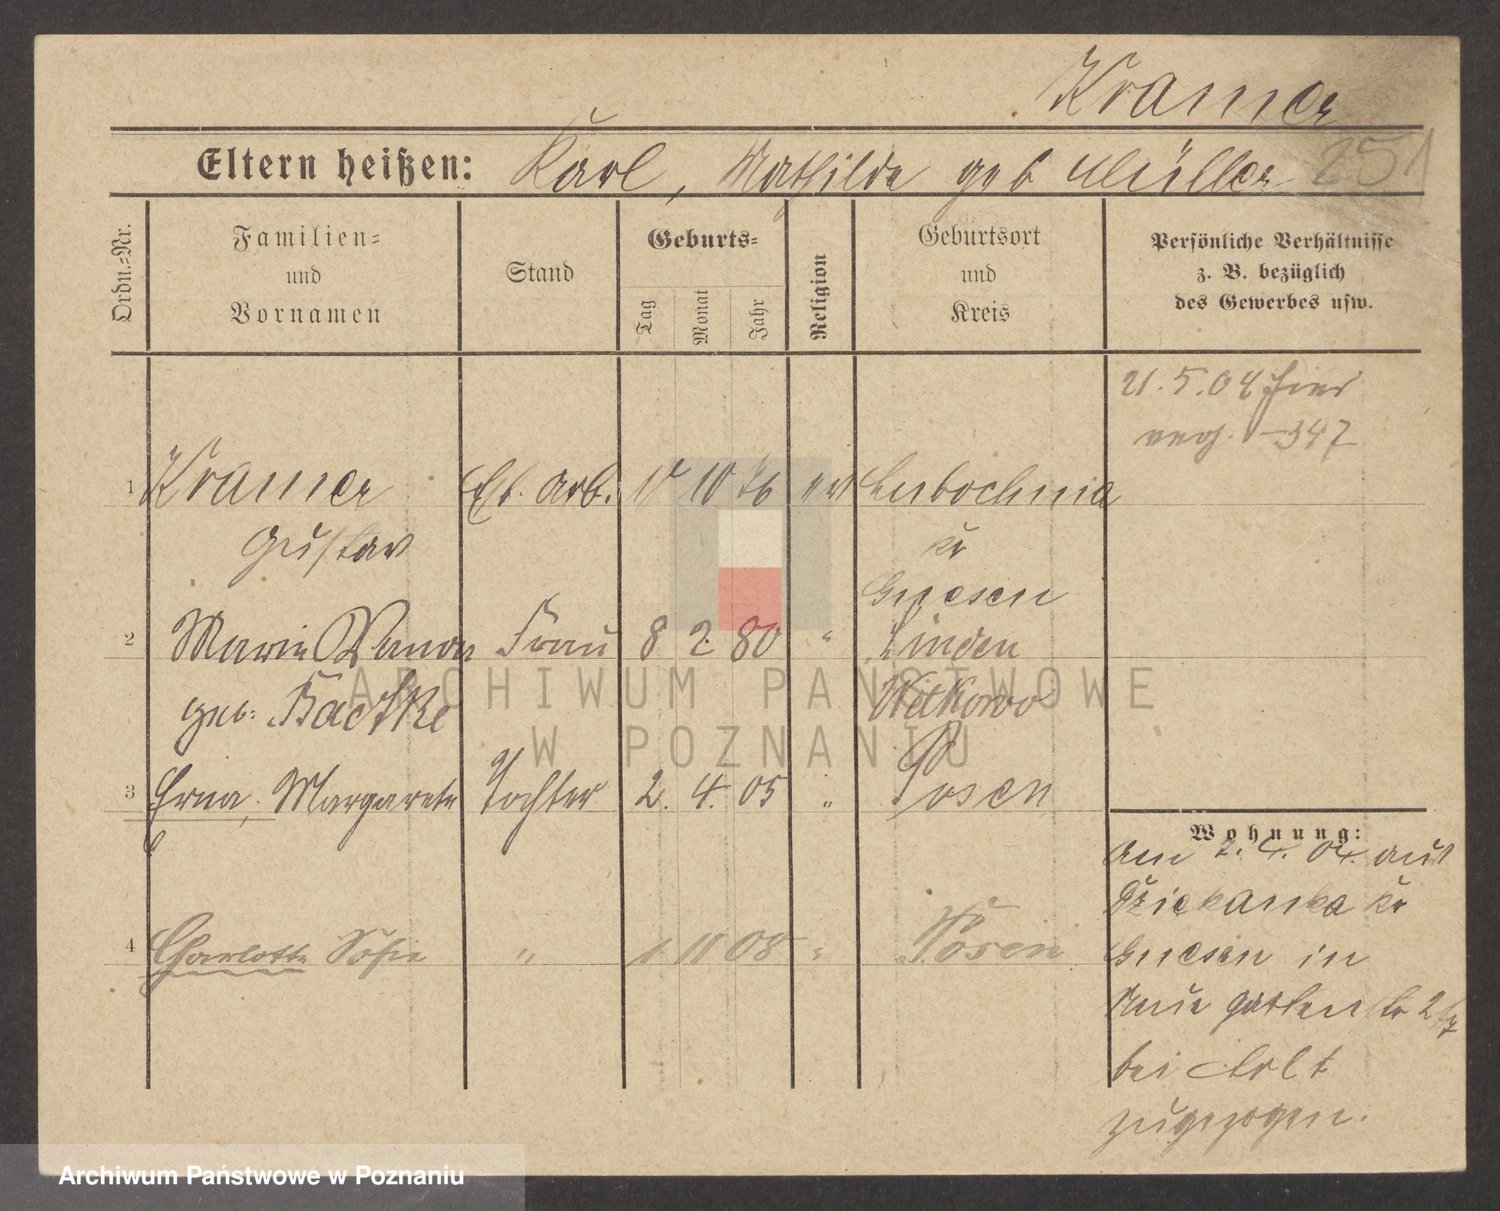 Kramer
Eltern heißen: Karl, Mathilde geb Müller 251
Ordn.-Nr.
Familien-
und
Vornamen
Stand
Geburts-
Tag
Monat
Jahr
Religion
Geburtsort
und
Kreis
Persönliche Verhältnisse
z. B. bezüglich
des Gewerbes usw.
21. 5. 04 hier
347
1 Kramer Arb. 10 76 Lubochnia
Gustav kr
Gnesen
2 Marie Frau 8 2. 80 " Linden
geb. Witkowo
3 Erna, Margarete Tochter 2. 4. 05 " Posen
Wohnung:
am 2. 4. 04. aus
Dziekanka kr
4 Charlotte Sofie " 1 11 08 " Posen
Gnesen in
Neue Gartenstr 2
bei
zugezogen.
ARCHIWUM PAŃSTWOWE
W POZNANIU
Archiwum Państwowe w Poznaniu